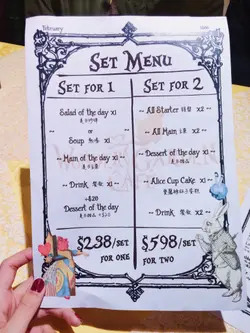 February
Set Menu
Set for 1
Salad of the day x1
or
Soup x1
-- Main of the day x1 --
-- Drink 餐飲 x1 --
+$20
Dessert of the day
$238/set
for one
Set for 2
-- All Starter x2 --
-- All Main x2 --
Dessert of the day x1
-- Alice Cup Cake x1 --
-- Drink 餐飲 x2 --
$598/set
for two